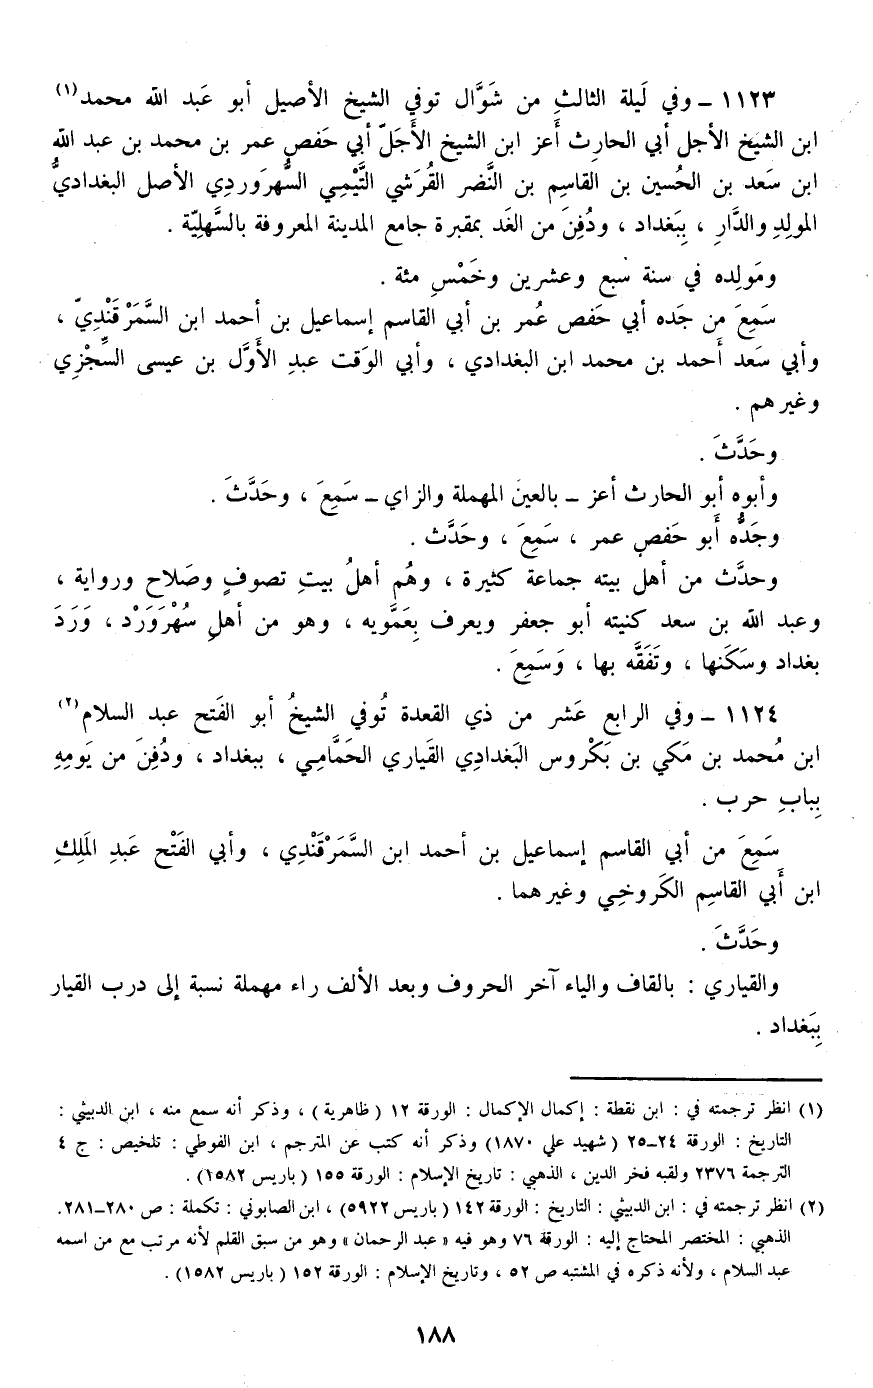 ١١٢٣ ـ وفي لَيلة الثالثِ من شَوَّال توفي الشيخ الأصيل أبو عَبد الله محمد(١)
ابن الشيَخ الأجل أبي الحارِث أَعز ابن الشيخ الأَجَلّ أبي حَفص عمر بن محمد بن عبد الله
ابن سَعد بن الحُسين بن القاسِم بن النَّضر القُرَشي التَّيْمِي السُّهرَوردِي الأصل البغداديُّ
المولِدِ والدَّارِ ، بِبَغداد ، ودُفِنَ من الغَد بمقبرة جامع المدينة المعروفة بالسَّهلِيّة .
ومَولِده في سنة سَبع وعشرين وخَمْسِ مئة .
سَمِعَ من جَده أبي حَفص عُمر بن أبي القاسم إسماعيل بن أحمد ابن السَّمَرْقَنْدِيّ ،
وأبي سَعد أَحمد بن محمد ابن البغدادي ، وأبي الوَقت عبدِ الأَوَّل بن عيسى السِّجْزِي
وغيرهم .
وحَدَّثَ .
وأبوه أبو الحارث أعز ـ بالعين المهملة والزاي ـ سَمِعَ ، وحَدَّثَ .
وجَدُّه أَبو حَفصٍ عمر ، سَمِعَ ، وحَدَّث .
وحدَّث من أهل بيته جماعة كثيرة ، وهُم أهلُ بيتِ تصوفٍ وصَلاح ورواية ،
وعبد الله بن سعد كنيته أبو جعفر ويعرف بِعَمَّويه ، وهو من أهلِ سُهْرَوَرْد ، وَرَدَ
بغداد وسَكَنها ، وتَفَقَّه بها ، وَسَمِعَ .
١١٢٤ ـ وفي الرابع عَشر من ذي القعدة تُوفي الشيخُ أبو الفَتح عبد السلام(٢)
ابن مُحمد بن مَكي بن بَكْروس البَغدادِي القَياري الحَمَّامِي ، ببغداد ، ودُفِنَ من يَومِهِ
بِبابِ حرب .
سَمِعَ من أبي القاسم إسماعيل بن أحمد ابن السَّمَرْقَنْدِي ، وأبي الفَتْح عَبدِ المَلِكِ
ابن أَبي القاسِم الكَروخي وغيرهما .
وحَدَّثَ .
والقياري : بالقاف والياء آخر الحروف وبعد الألف راء مهملة نسبة إلى درب القيار
بِبَغداد .
(١) انظر ترجمته في : ابن نقطة : إكمال الإكمال : الورقة ١٢ ( ظاهرية ) ، وذكر أنه سمع منه ، ابن الدبيثي :
التاريخ : الورقة ٢٤ـ٢٥ ( شهيد علي ١٨٧٠) وذكر أنه كتب عن المترجم ، ابن الفوطي : تلخيص : ج ٤
الترجمة ٢٣٧٦ ولقبه فخر الدين ، الذهبي : تاريخ الإسلام : الورقة ١٥٥ ( باريس ١٥٨٢) .
(٢) انظر ترجمته في : ابن الدبيثي : التاريخ : الورقة ١٤٢ ( باريس ٥٩٢٢) ، ابن الصابوني : تكملة : ص ٢٨٠ـ٢٨١.
الذهبي : المختصر المحتاج إليه : الورقة ٧٦ وهو فيه « عبد الرحمان » وهو من سبق القلم لأنه مرتب مع من اسمه
عبد السلام ، ولأنه ذكره في المشتبه ص ٥٢ ، وتاريخ الإسلام : الورقة ١٥٢ ( باريس ١٥٨٢) .
١٨٨